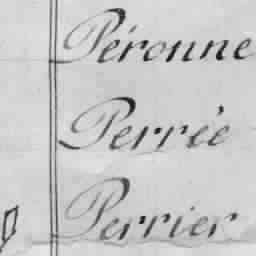 Péronne
Perrée
Perrier